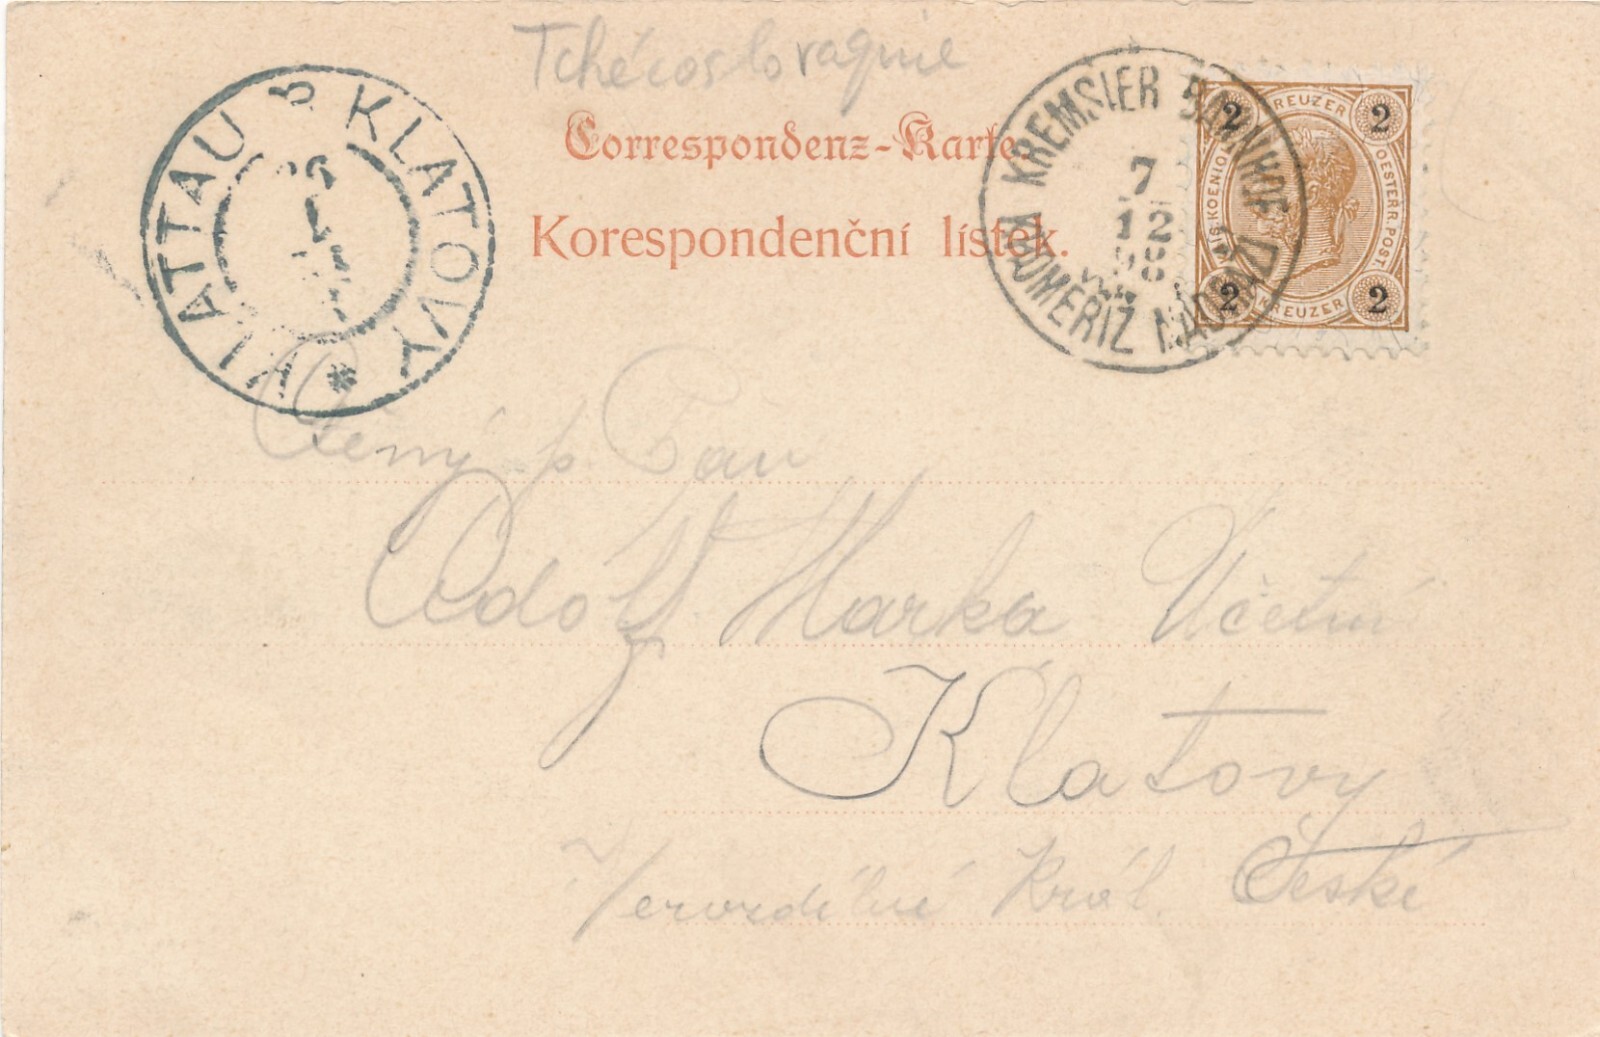 Tchécoslovaquie
Correspondenz-Karte.
Korespondenční lístek.
KLATTAU KLATOVY
KREMSIER BAHNHOF
7
12
98
KROMĚŘÍŽ NÁDRAŽÍ
2 KREUZER 2
KAIS. KOENIGL. OESTERR. POST.
2 KREUZER 2
Ctěný p. Pan
Adolf Marka Účetní
Klatovy
Král. České